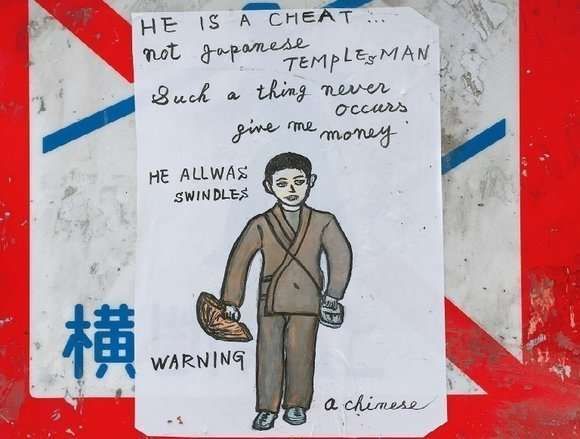 HE IS A CHEAT...
not Japanese
TEMPLEsMAN
Such a thing never
occurs
give me money
HE ALLWAS
SWINDLES
WARNING
a chinese
横